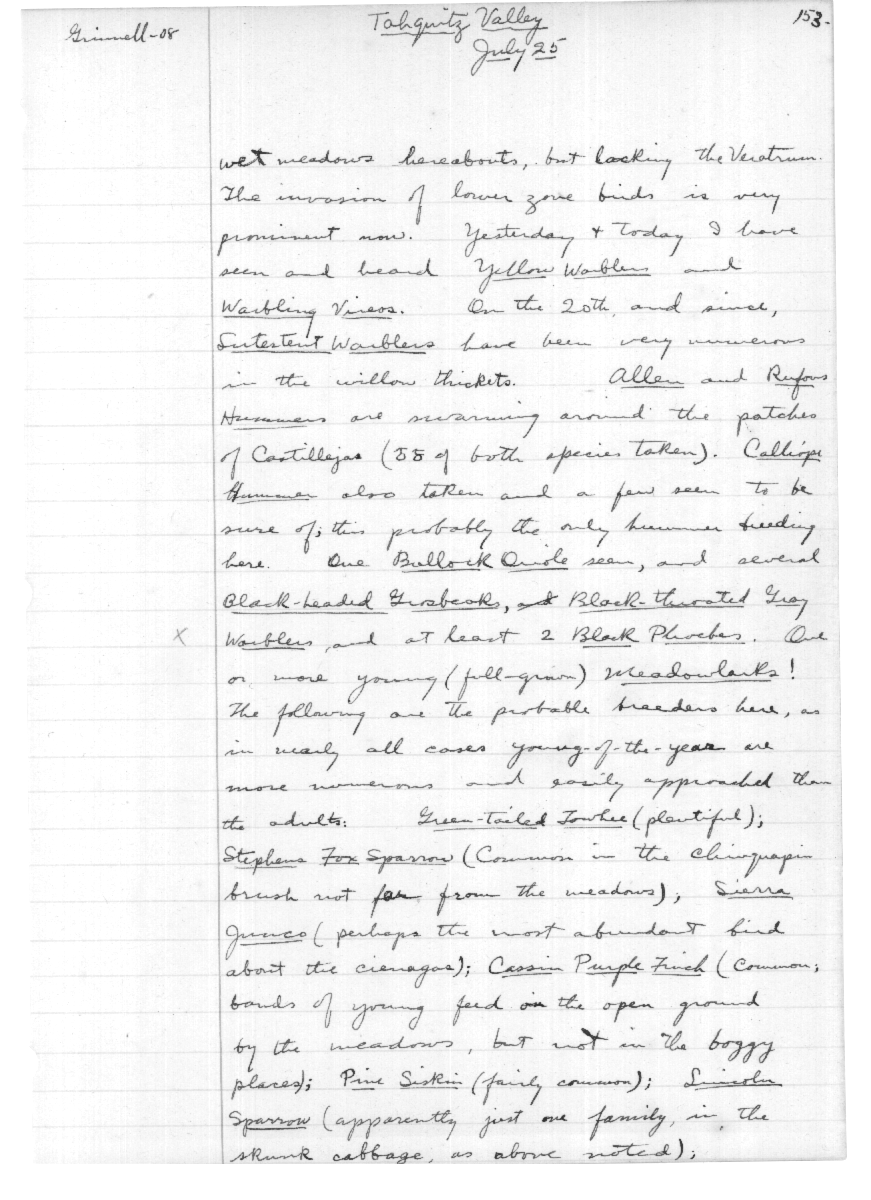 Grinnell-08
Tahquitz Valley
153-
July 25
wet meadows hereabouts, but lacking the Veratrum.
The invasion of lower zone birds is very
prominent now. Yesterday + Today I have
seen and heard Yellow Warblers and
Warbling Vireos. On the 20th, and since,
Lutescent Warblers have been very numerous
in the willow thickets. Allen and Rufous
Hummers are swarming around the patches
of Castillejas (of both species taken). Calliope
Hummer also taken and a few seen to be
sure of; this probably the only hummer breeding
here. One Bullock Oriole seen, and several
Black-headed Grosbeaks, Black-throated Gray
X Warblers, and at least 2 Black Phoebes. One
or more young (full-grown) Meadowlarks!
The following are the probable breeders here, as
in nearly all cases young-of-the-year are
more numerous and easily approached than
the adults: Green-Tailed Towhee (plentiful);
Stephens Fox Sparrow (Common in the chinquapin
brush not far from the meadows); Sierra
Junco (perhaps the most abundant bird
about the cienagas); Cassin Purple Finch (Common;
bands of young feed on the open ground
by the meadows, but not in the boggy
places); Pine Siskin (fairly common); Lincoln
Sparrow (apparently just one family, in the
skunk cabbage, as above noted);